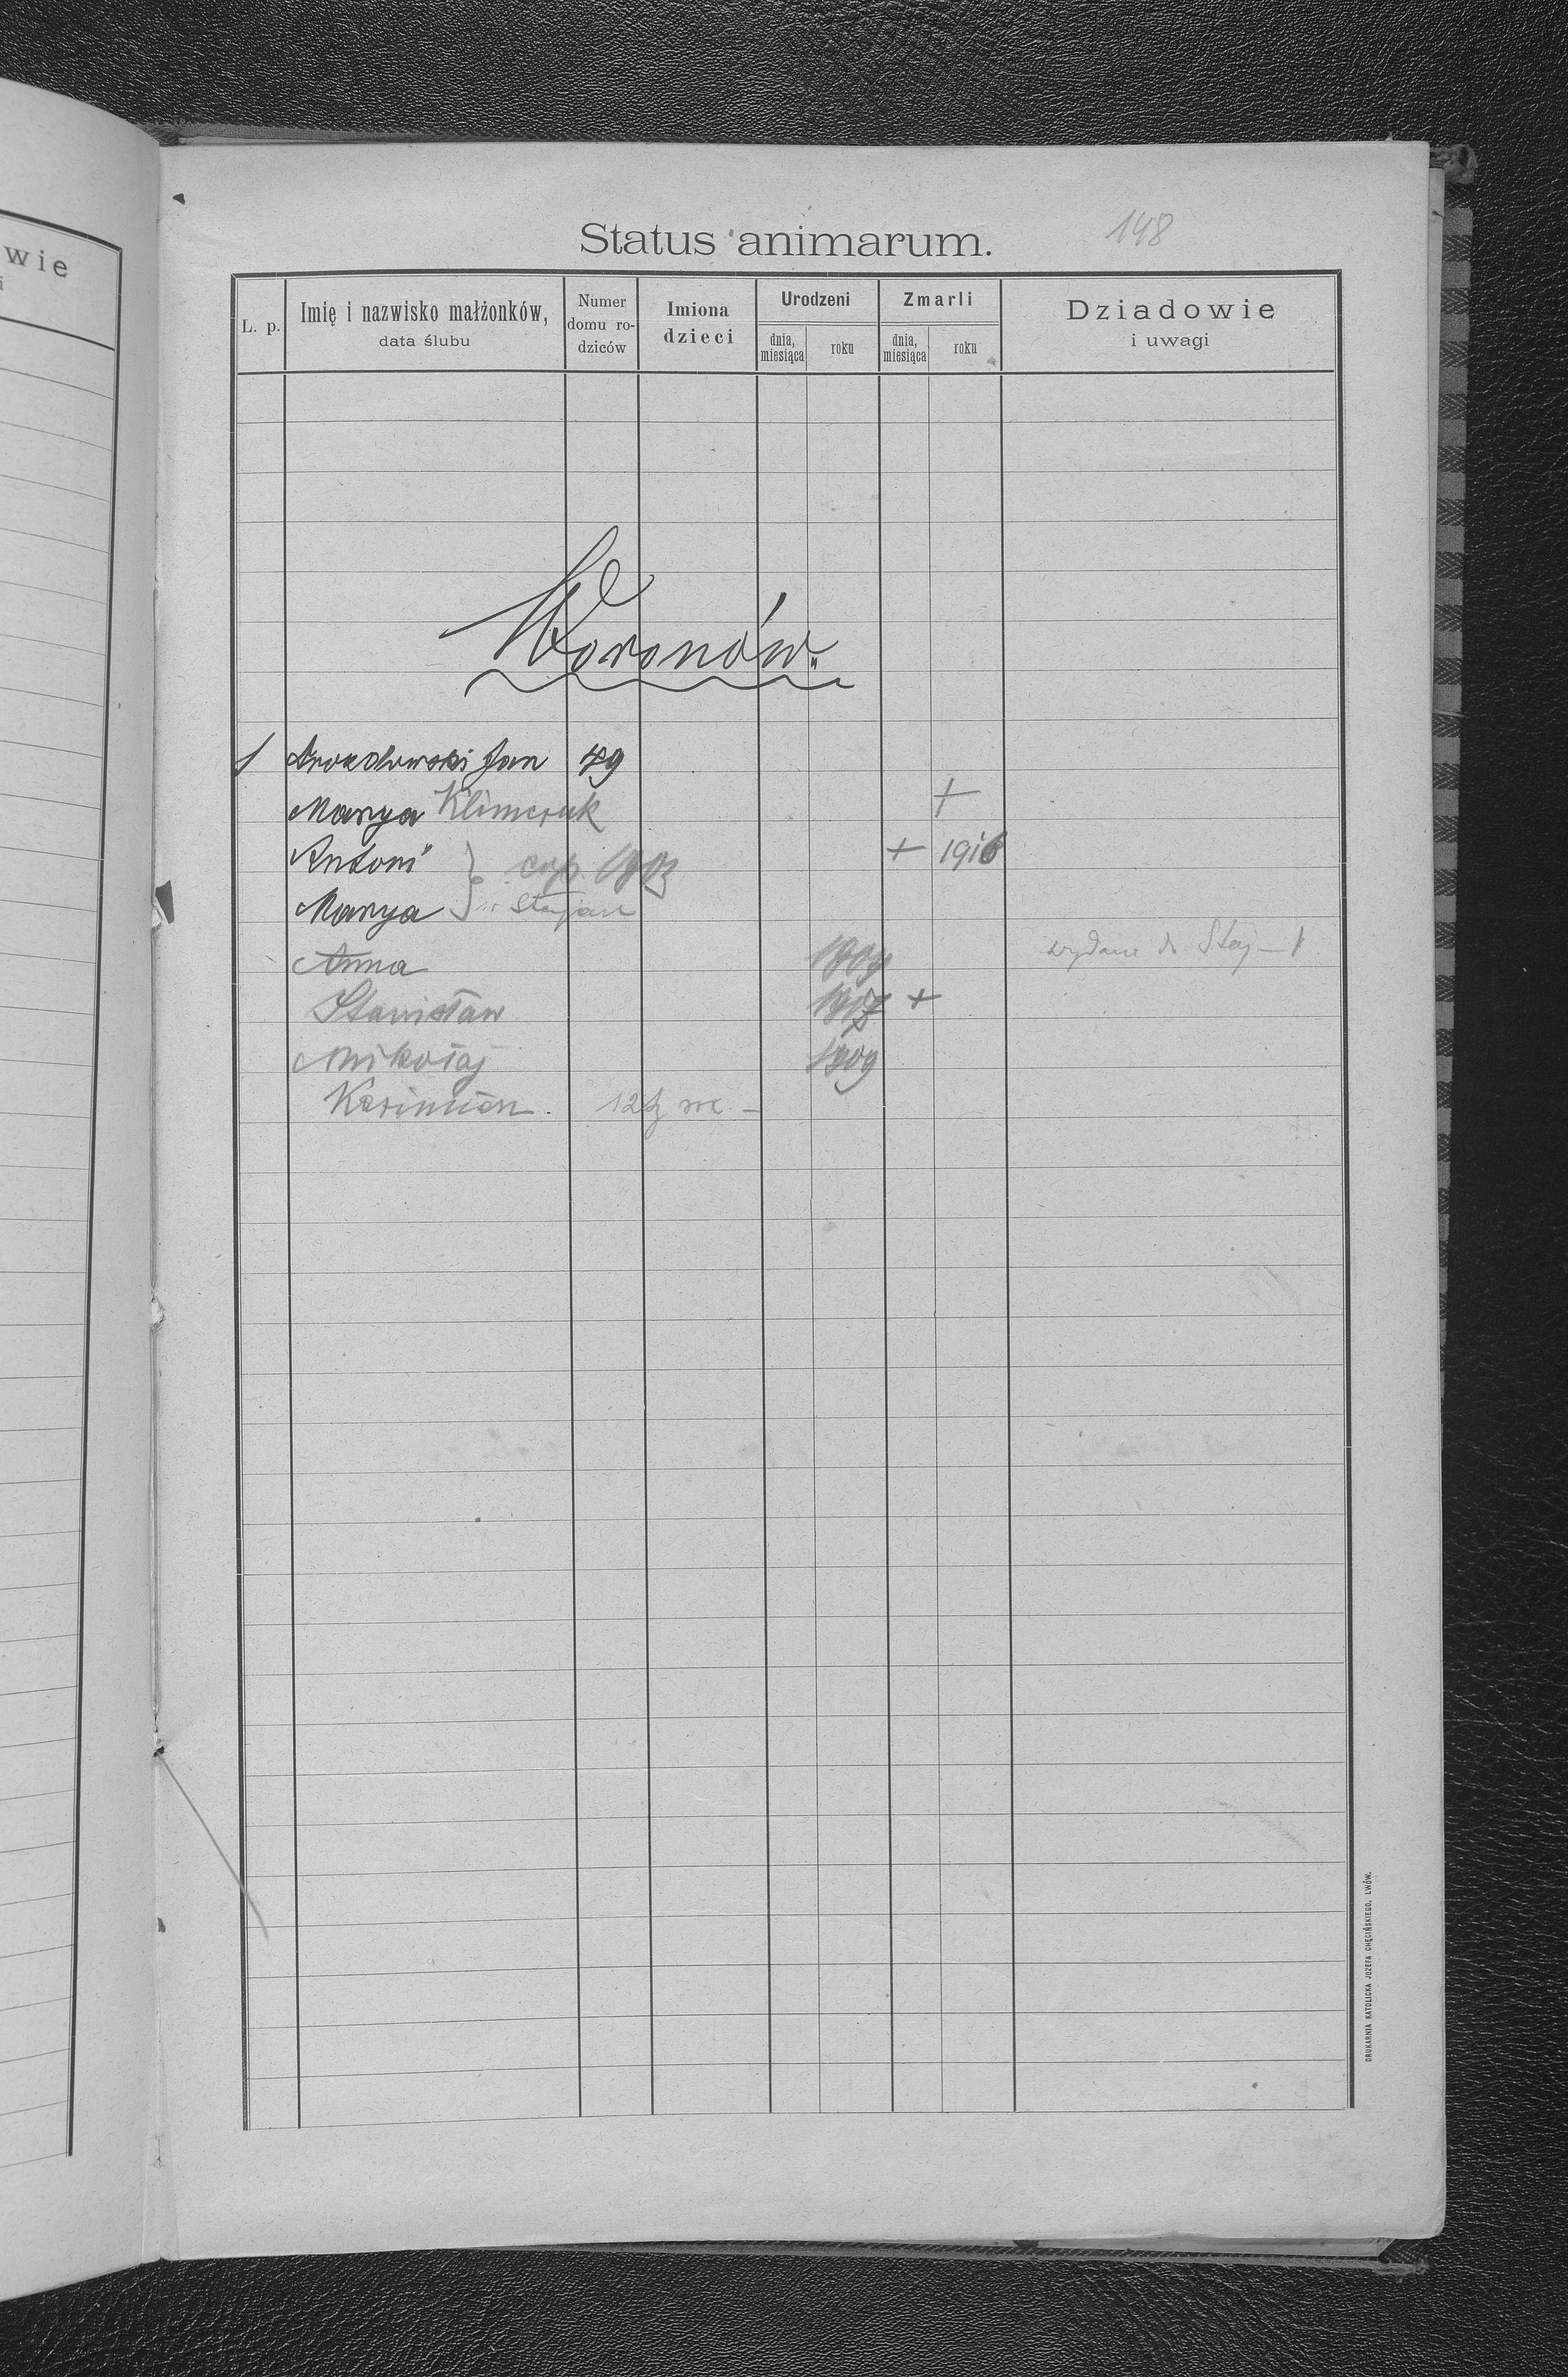 wie
i
Status animarum.
148
L. p.
Imię i nazwisko małżonków,
data ślubu
Numer
domu ro-
dziców
Imiona
dzieci
Urodzeni
dnia,
miesiąca
roku
Zmarli
dnia,
miesiąca
roku
Dziadowie
i uwagi
Woronów
1 Jan 49
Marya Klimczuk +
Antoni cop. 1903 + 1916
Marya
Anna 1904 wydane do
Stanisław 1907 +
Mikołaj 1909
DRUKARNIA KATOLICKA JOZEFA CHĘCIŃSKIEGO, LWÓW.